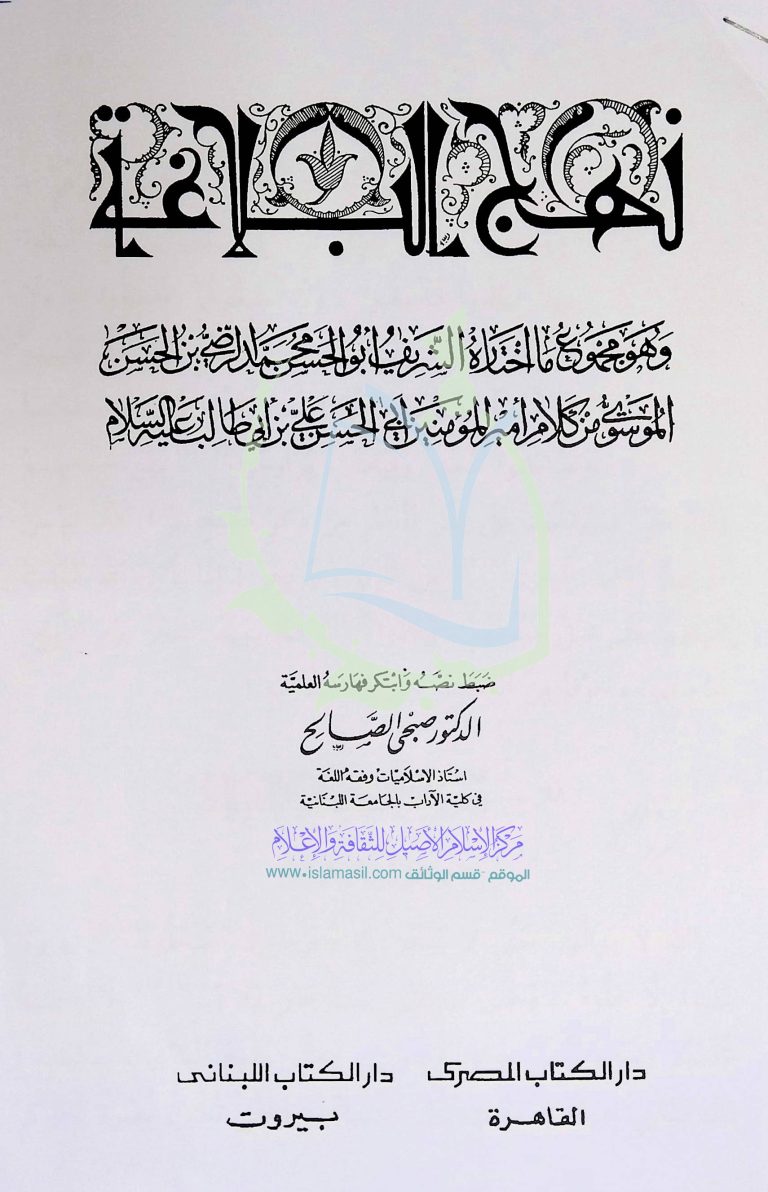 نهج البلاغة
وَهُوَ مَجْمُوعُ مَا اخْتَارَهُ الشَّرِيفُ أَبُو الحَسَن مُحَمَّد الرَّضِيُّ بْنُ الحَسَن
المُوسَوِيُّ مِنْ كَلَامِ أَمِيرِ المُؤْمِنِينَ أَبِي الحَسَنِ عَلِيِّ بْنِ أَبِي طَالِب عَلَيْهِ السَّلَامُ
ضَبَطَ نصّهُ وَابْتَكَر فهَارسَهُ العلميَّة
الدكتور صبحي الصَّالِح
اسْتَاذ الاسْلاميّات وفقه اللغة
في كلية الآداب بالجامعة اللبنانية
مركز الإسلام الأصيل للثقافة والإعلام
الموقع - قسم الوثائق www.islamasil.com
دار الكتاب المصرى دار الكتاب اللبنانى
القاهرة بيروت